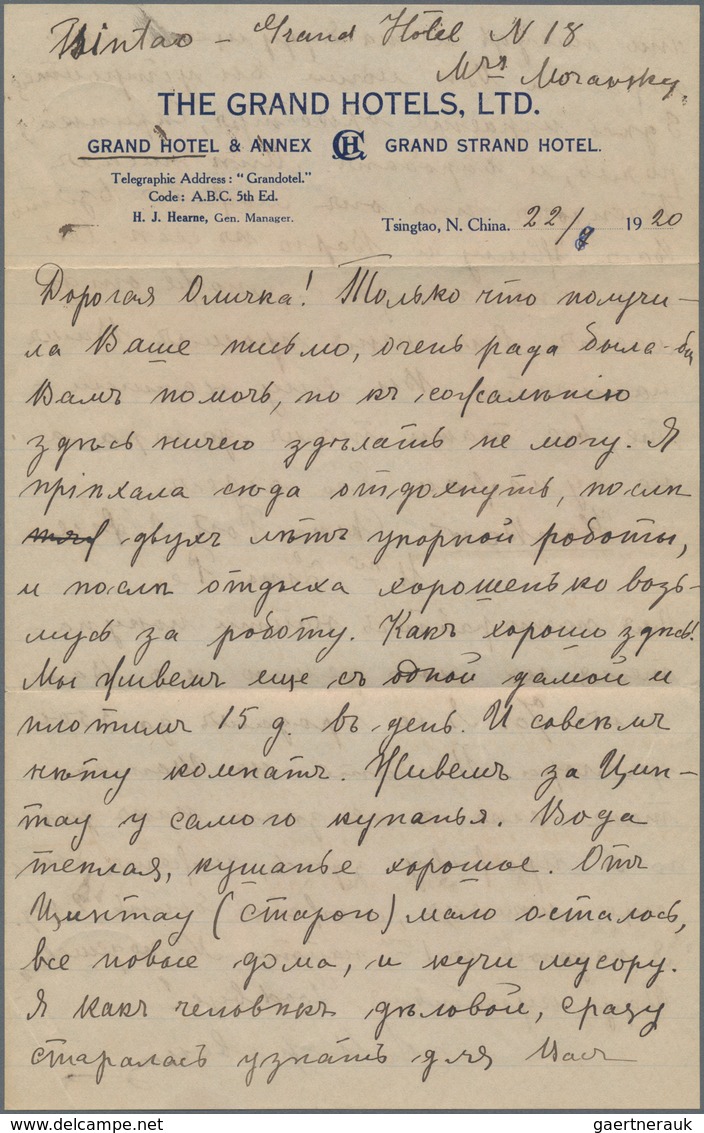 Tsintao – Grand Hotel N 18
Mrs Moravsky.
THE GRAND HOTELS, LTD.
GRAND HOTEL & ANNEX GH GRAND STRAND HOTEL.
Telegraphic Address: "Grandotel."
Code: A.B.C. 5th Ed.
H. J. Hearne, Gen. Manager.
Tsingtao, N. China. 22/8 1920
Дорогая Оличка! Только что получи–
ла Ваше письмо, очень рада была-бы
Вамъ помочь, но къ сожалѣнію
здѣсь ничего здѣлать не могу. Я
пріѣхала сюда отдохнуть, послѣ
двухъ лѣтъ упорной роботы,
и послѣ отдыха хорошенько возь–
мусь за роботу. Какъ хорошо здѣсь!
Мы живемъ еще съ одной дамой и
плотимъ 15 д. въ день. И совсѣмъ
нѣту комнатъ. Живемъ за Цин–
тау у самого купанья. Вода
теплая, кушанье хорошое. Отъ
Цинтау (старого) мало осталось,
все новые дома, и кучи мусору.
Я какъ человѣкъ дѣловой, сразу
старалась узнать для Васъ
gaertnerauk @ delcampe.net